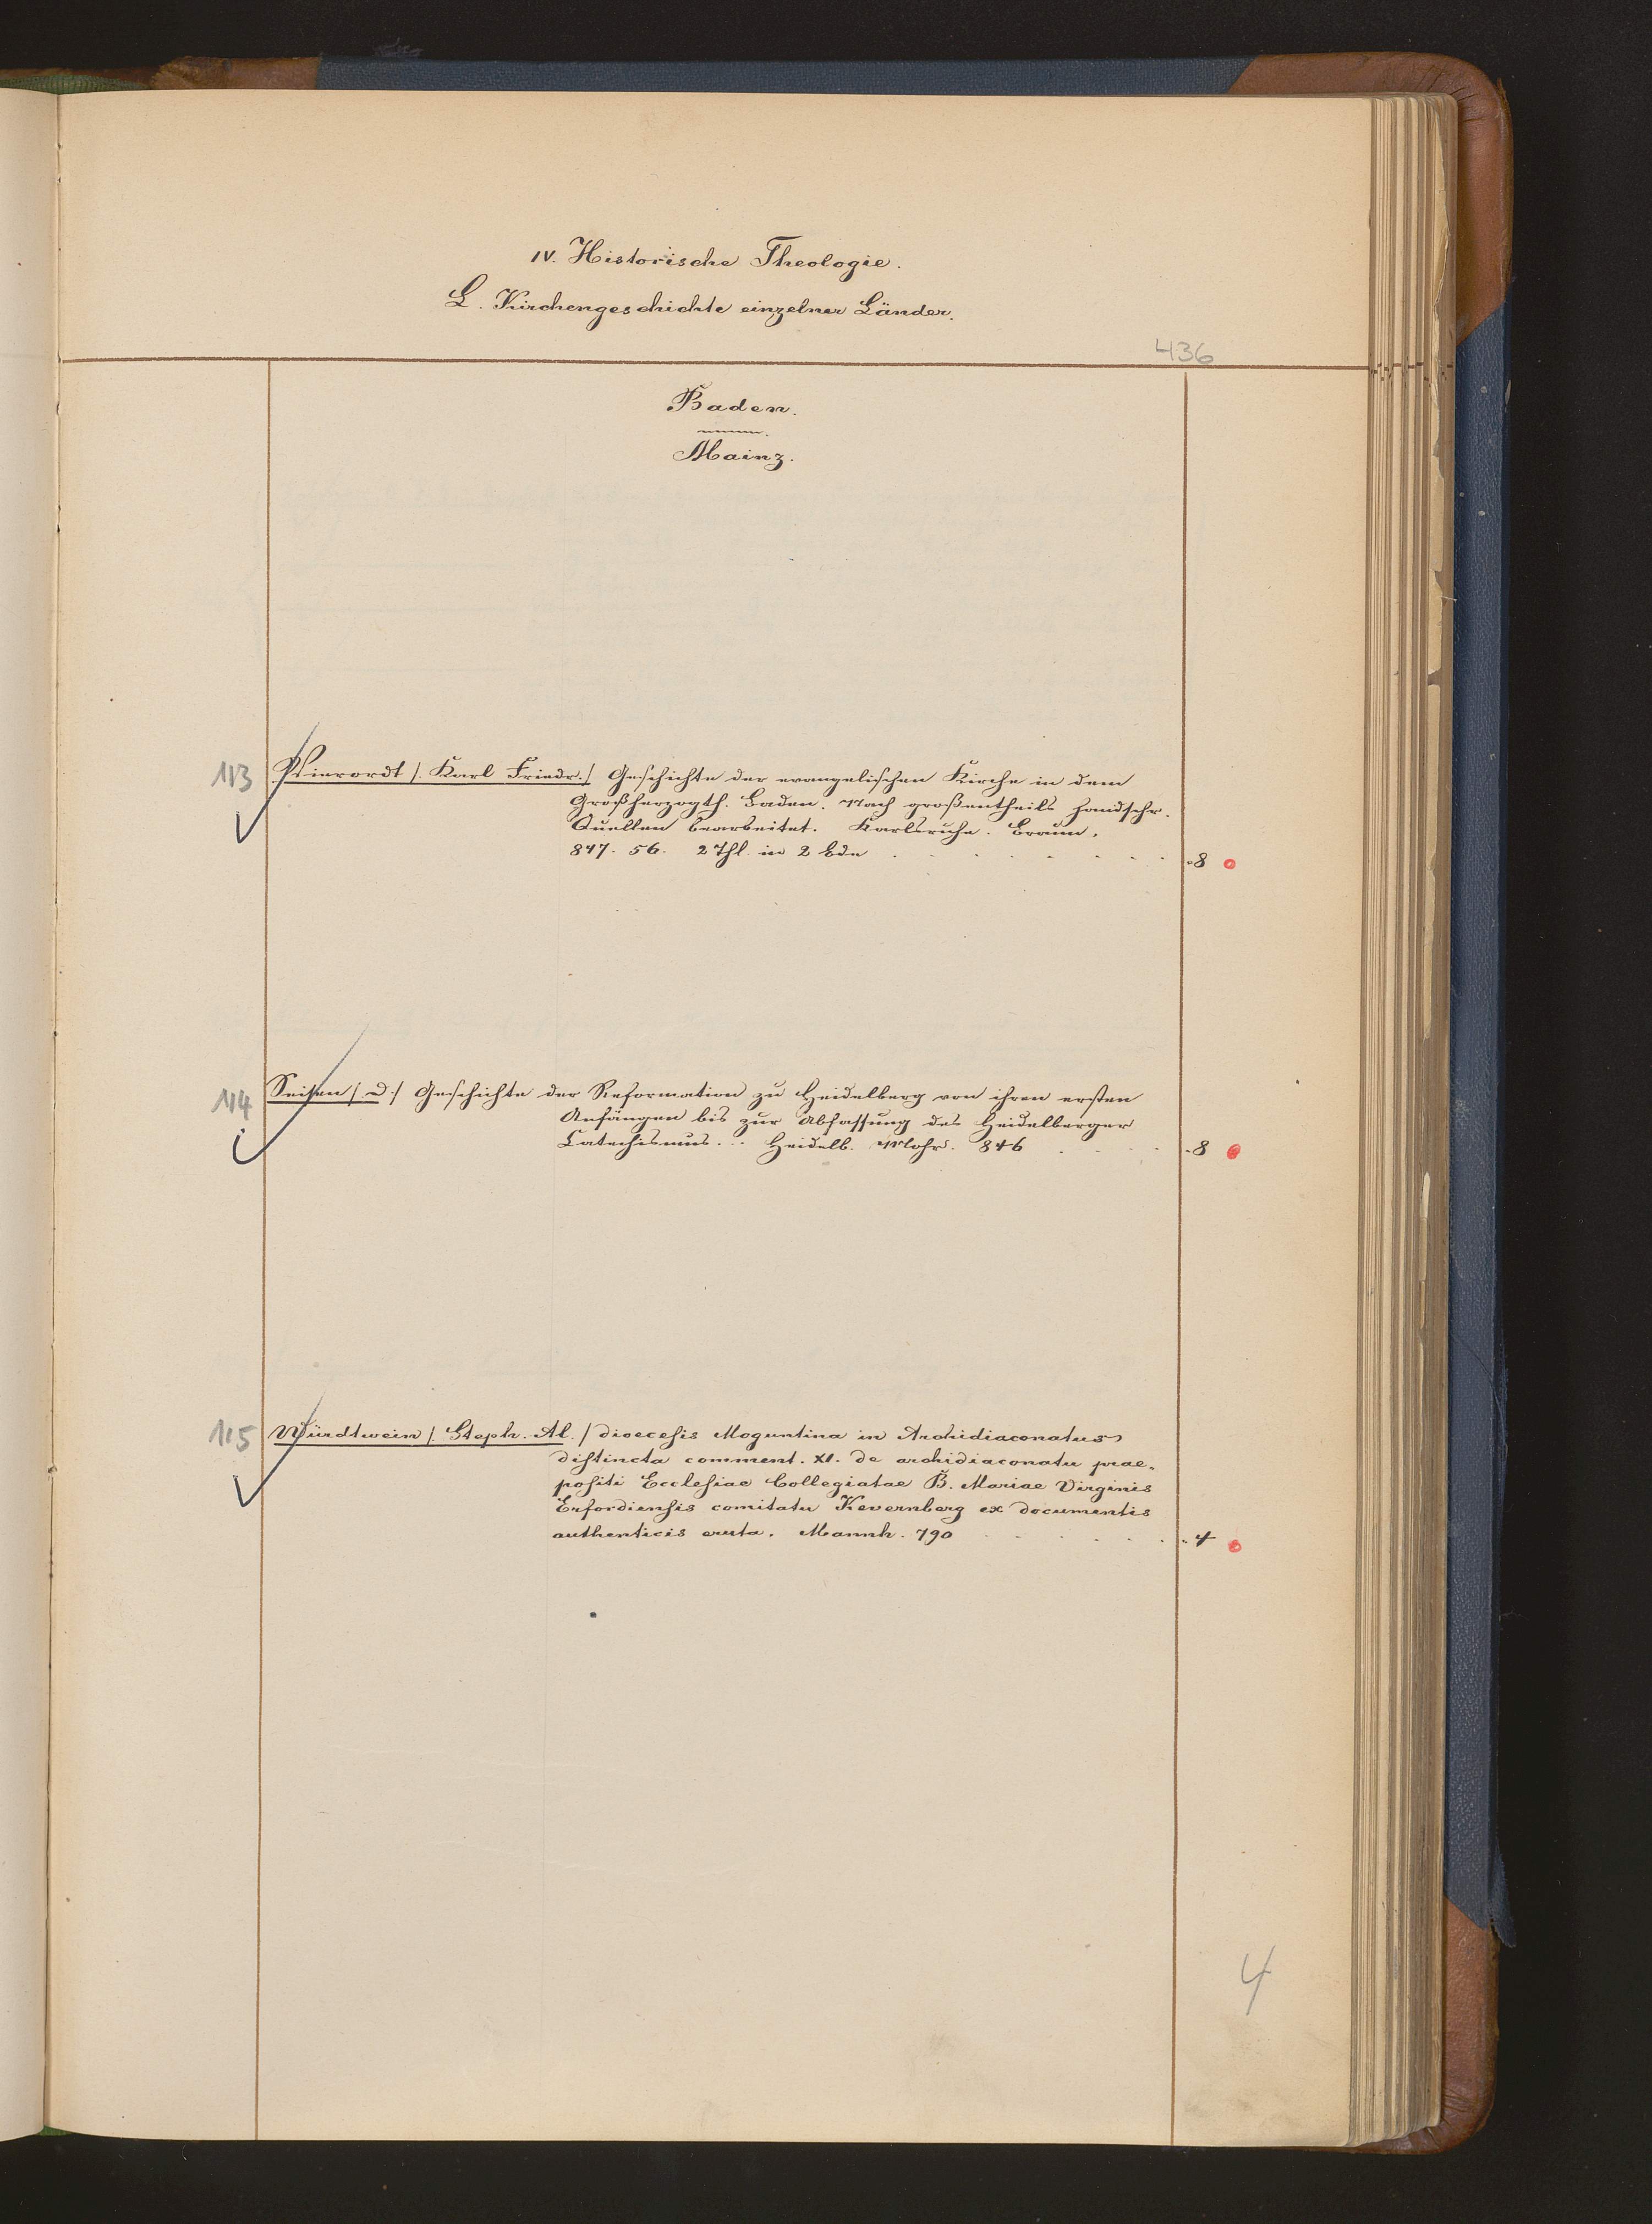 IV. Historische Theologie.
L. Kirchengeschichte einzelner Länder.
436
Baden.
Mainz.
113 Vierordt /. Karl Friedr./ Geschichte der evangelischen Kirche in dem
Großherzogth. Baden. Nach großentheils handschr.
Quellen bearbeitet. Karlsruhe. Braun.
847. 56. 2 Thl. in 2 Bde . . . . . . . . 8
114 Seisen /. D:/ Geschichte der Reformation zu Heidelberg von ihren ersten
Anfängen bis zur Abfassung des Heidelberger
Catechismus... Heidelb. Mohr. 846 . . . . 8
115 Würdtwein /. Steph. Al. / Dioecesis Moguntina in Archidiaconatus
distincta comment. XI. de archidiaconatu prae-
positi Ecclesiae Collegiatae B. Mariae Virginis
Erfordiensis comitatu Kevernberg ex documentis
authenticis eruta. Mannh. 790 . . . . . . 4
4